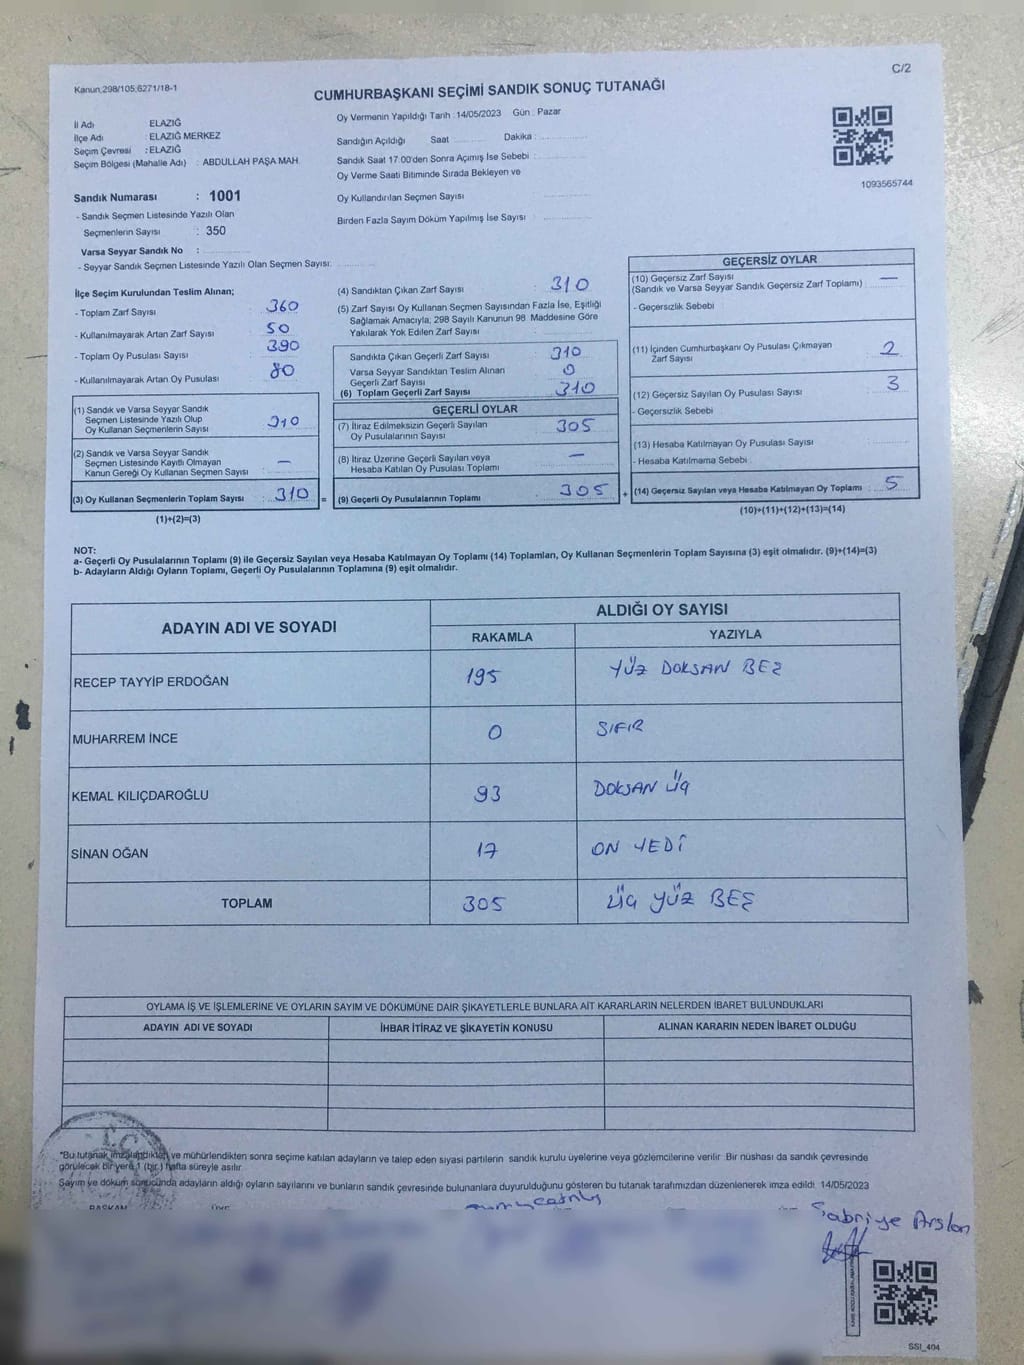 Kanun;298/105;6271/18-1
C/2
CUMHURBAŞKANI SEÇİMİ SANDIK SONUÇ TUTANAĞI
İl Adı ELAZIĞ
İlçe Adı : ELAZIĞ MERKEZ
Seçim Çevresi : ELAZIĞ
Seçim Bölgesi (Mahalle Adı) : ABDULLAH PAŞA MAH.
Oy Vermenin Yapıldığı Tarih :14/05/2023 Gün : Pazar
Sandığın Açıldığı Saat Dakika :
Sandık Saat 17:00'den Sonra Açılmış İse Sebebi :
Oy Verme Saati Bitiminde Sırada Bekleyen ve
Oy Kullandırılan Seçmen Sayısı :
Birden Fazla Sayım Döküm Yapılmış İse Sayısı :
1093565744
Sandık Numarası : 1001
- Sandık Seçmen Listesinde Yazılı Olan
Seçmenlerin Sayısı : 350
Varsa Seyyar Sandık No :
- Seyyar Sandık Seçmen Listesinde Yazılı Olan Seçmen Sayısı:
İlçe Seçim Kurulundan Teslim Alınan;
- Toplam Zarf Sayısı : 360
- Kullanılmayarak Artan Zarf Sayısı : 50
- Toplam Oy Pusulası Sayısı : 390
- Kullanılmayarak Artan Oy Pusulası : 80
(1) Sandık ve Varsa Seyyar Sandık
Seçmen Listesinde Yazılı Olup
Oy Kullanan Seçmenlerin Sayısı : 310
(2) Sandık ve Varsa Seyyar Sandık
Seçmen Listesinde Kayıtlı Olmayan
Kanun Gereği Oy Kullanan Seçmen Sayısı : —
(3) Oy Kullanan Seçmenlerin Toplam Sayısı : 310 =
(1)+(2)=(3)
(4) Sandıktan Çıkan Zarf Sayısı : 310
(5) Zarf Sayısı Oy Kullanan Seçmen Sayısından Fazla İse, Eşitliği
Sağlamak Amacıyla; 298 Sayılı Kanunun 98. Maddesine Göre
Yakılarak Yok Edilen Zarf Sayısı :
Sandıkta Çıkan Geçerli Zarf Sayısı : 310
Varsa Seyyar Sandıktan Teslim Alınan
Geçerli Zarf Sayısı : 0
(6) Toplam Geçerli Zarf Sayısı : 310
GEÇERLİ OYLAR
(7) İtiraz Edilmeksizin Geçerli Sayılan
Oy Pusulalarının Sayısı : 305
(8) İtiraz Üzerine Geçerli Sayılan veya
Hesaba Katılan Oy Pusulası Toplamı : —
(9) Geçerli Oy Pusulalarının Toplamı : 305 +
GEÇERSİZ OYLAR
(10) Geçersiz Zarf Sayısı
(Sandık ve Varsa Seyyar Sandık Geçersiz Zarf Toplamı) : —
- Geçersizlik Sebebi :
(11) İçinden Cumhurbaşkanı Oy Pusulası Çıkmayan
Zarf Sayısı : 2
(12) Geçersiz Sayılan Oy Pusulası Sayısı : 3
- Geçersizlik Sebebi :
(13) Hesaba Katılmayan Oy Pusulası Sayısı :
- Hesaba Katılmama Sebebi :
(14) Geçersiz Sayılan veya Hesaba Katılmayan Oy Toplamı : 5
(10)+(11)+(12)+(13)=(14)
NOT:
a- Geçerli Oy Pusulalarının Toplamı (9) ile Geçersiz Sayılan veya Hesaba Katılmayan Oy Toplamı (14) Toplamları, Oy Kullanan Seçmenlerin Toplam Sayısına (3) eşit olmalıdır. (9)+(14)=(3)
b- Adayların Aldığı Oyların Toplamı, Geçerli Oy Pusulalarının Toplamına (9) eşit olmalıdır.
ADAYIN ADI VE SOYADI ALDIĞI OY SAYISI
RAKAMLA YAZIYLA
RECEP TAYYİP ERDOĞAN 195 YÜZ DOKSAN BEŞ
MUHARREM İNCE 0 SIFIR
KEMAL KILIÇDAROĞLU 93 DOKSAN ÜÇ
SİNAN OĞAN 17 ON YEDİ
TOPLAM 305 ÜÇ YÜZ BEŞ
OYLAMA İŞ VE İŞLEMLERİNE VE OYLARIN SAYIM VE DÖKÜMÜNE DAİR ŞİKAYETLERLE BUNLARA AİT KARARLARIN NELERDEN İBARET BULUNDUKLARI
ADAYIN ADI VE SOYADI İHBAR İTİRAZ VE ŞİKAYETİN KONUSU ALINAN KARARIN NEDEN İBARET OLDUĞU
T.C.
"Bu tutanak imzalandıktan ve mühürlendikten sonra seçime katılan adayların ve talep eden siyasi partilerin sandık kurulu üyelerine veya gözlemcilerine verilir. Bir nüshası da sandık çevresinde
görülecek bir yere 1 (bir) hafta süreyle asılır.
Sayım ve döküm sonucunda adayların aldığı oyların sayılarını ve bunların sandık çevresinde bulunanlara duyurulduğunu gösteren bu tutanak tarafımızdan düzenlenerek imza edildi. 14/05/2023
BAŞKAN ÜYE
Sabriye Arslan
SSI_404